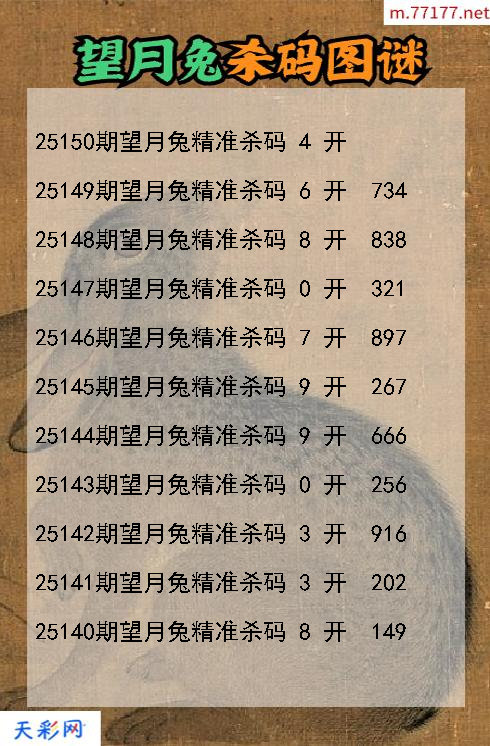 m.77177.net
望月兔杀码图谜
25150期望月兔精准杀码 4 开
25149期望月兔精准杀码 6 开 734
25148期望月兔精准杀码 8 开 838
25147期望月兔精准杀码 0 开 321
25146期望月兔精准杀码 7 开 897
25145期望月兔精准杀码 9 开 267
25144期望月兔精准杀码 9 开 666
25143期望月兔精准杀码 0 开 256
25142期望月兔精准杀码 3 开 916
25141期望月兔精准杀码 3 开 202
25140期望月兔精准杀码 8 开 149
天彩网